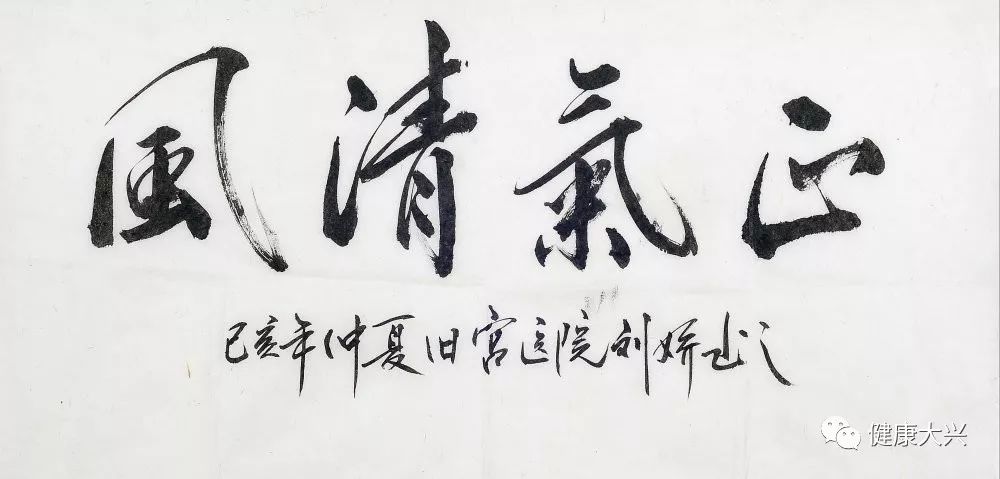 風清氣正
己亥年仲夏旧宫医院刘娇书之
健康大兴